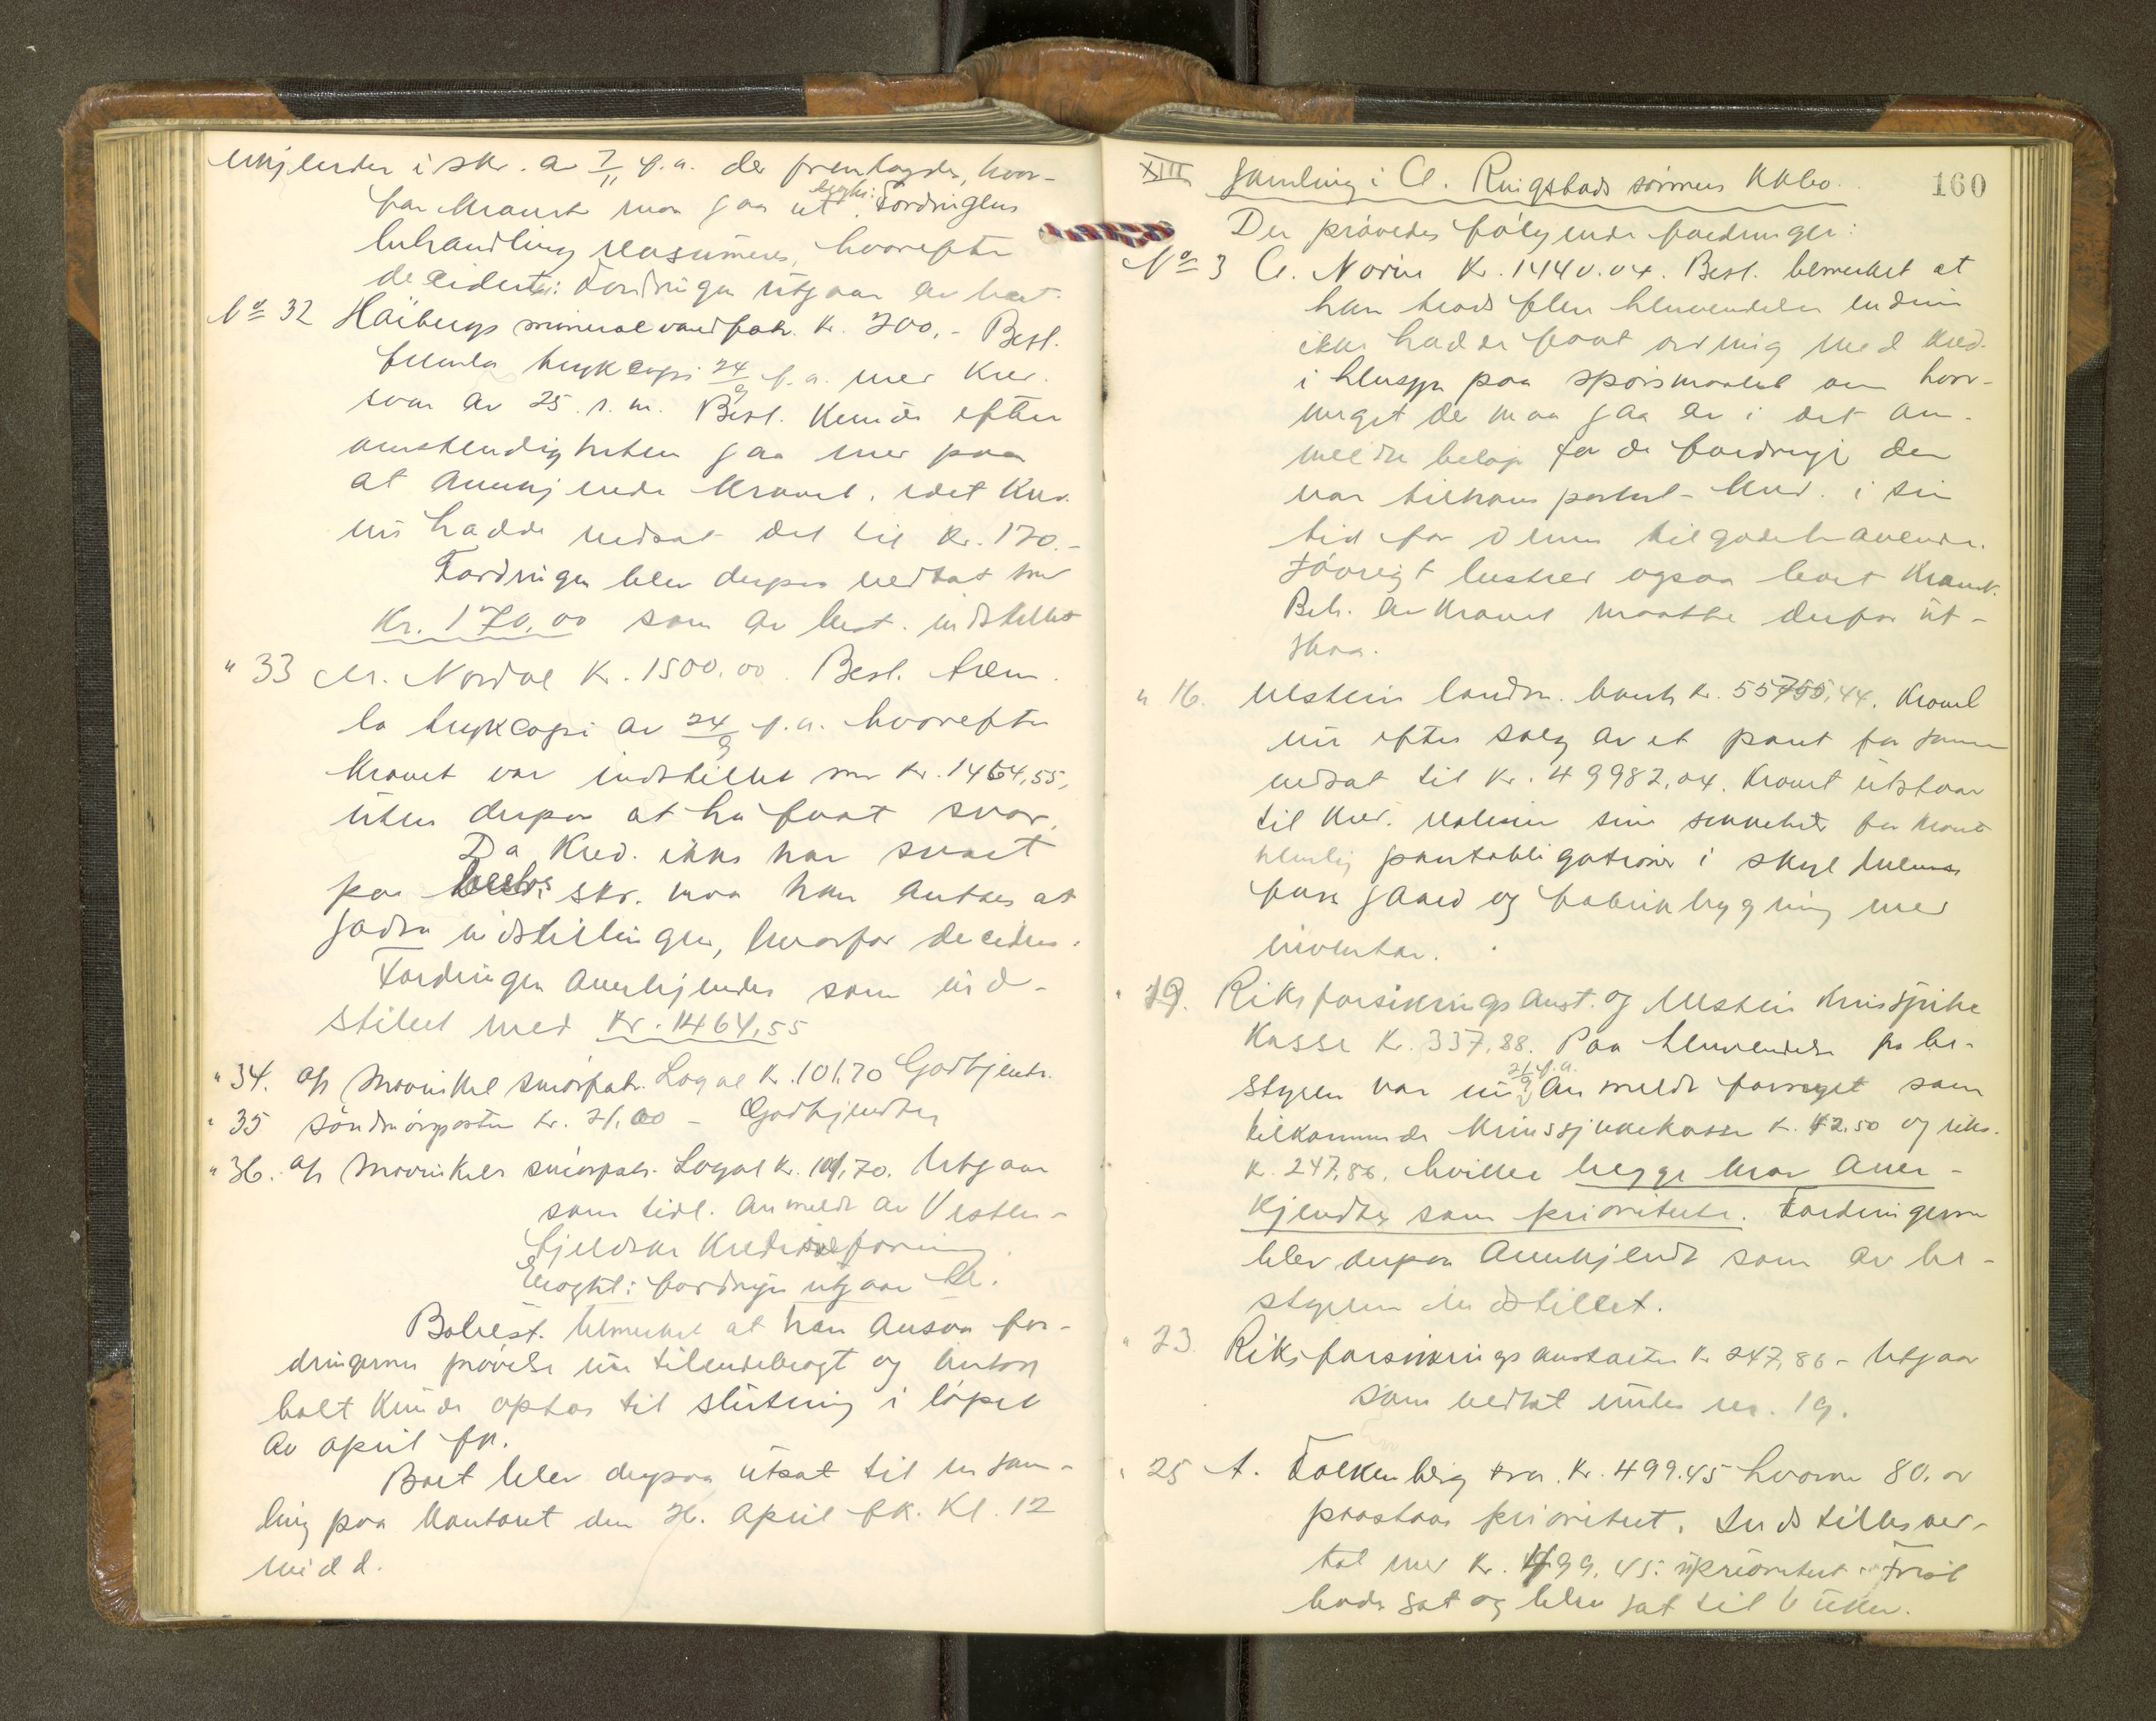 i skr. av 7/11 f.a. der fremlagdes, hvor-
for kravet maa gaa ut. Fordringens
behandling resumeres, hvorefter
decidertes: Fordringen utgaar av boet.
No 32 Haibergs mineralvandfabr. Kr. 200,- Best.
fremla trykcopi 24/9 f.a. med Kred.
svar av 25. s.m. Best. kunde efter
omstendigheten gaa med paa
at anerkjende kravet, idet Kred.
nu hadde nedsat det til Kr. 170.-
Fordringen blev derpaa vedtat med
Kr. 170,00 som av best. indstillet
" 33 M. Nordal Kr. 1500,00. Best. frem-
la trykcopi av 24/9 f.a. hvorefter
kravet var indstillet med Kr. 1464,55,
uten derpaa at ha faat svar.
Da Kred. ikke har svart
paa skr. maa han antaes at
godta indstillingen, hvorfor decideres:
Fordringen anerkjendes som ind-
stillet med Kr. 1464,55
" 34. A/s Mowinkel smørfabr. Logal Kr. 101.70 Godkjendt.
" 35 Söndmörsposten Kr. 21,00 - Godkjendtes
" 36. A/s Mowinkels smörfabr. Logal Kr. 101,70. Utgaar
som tidl. anmeldt av Vesten-
fjeldske Kreditforening.
fordringen utgaar
Bobest. bemerket at han ansaa for-
dringernes prövelse nu tilendebragt og
boet kunde optas til slutning i löpet
av april fk.
Boet blev derpaa utsat til en sam-
ling paa kontoret den 26. april fk. Kl. 12
midd.
160
XIII Samling i Cl. Ringstads sönners Kkbo.
Der prövedes fölgende fordringer:
No 3 Cl. Norin Kr. 1440.04. Best. bemerket at
han trods flere henvendelser endnu
ikke hadde faat ordnig med Kred.
i hensyn paa spörsmaalet om hvor-
meget der maa gaa av i det an-
meldte belöp for de fordringer der
var tiltransportert Kred. i sin
tid for tilgodehavende.
Iövrigt bestred ogsaa boet kravet.
Beh. av kravet maatte derfor ut-
staa.
" 16. Ulstein landm. bank Kr. 55755,44. Kravet
nu efter salg av et pant for samme
nedsat til Kr. 49982,04. Kravet utstaar
til Kred. sine sikkerheter for kravet
nemlig pantobligationer i
gaard og fabrikbygning med
inventar.
" 19. Riksforsikringsanst. og Ulstein kredssyke
kasse Kr. 337,88. Paa henvendelse fra be-
styreren var nu 21/9 f.a. anmeldt fravaget som
tilkommende Kredssykekassen Kr. 42,50 og riks.
Kr. 247,86, hvilke begge krav aner-
kjendtes som prioriterte. Fordringerne
blev derpaa anerkjendt som av be-
styreren indstillet.
" 23. Riksforsikringsanstalten Kr. 247,86 - Utgaar
som vedtat under nr. 19.
" 25 A. Falkenberg Kr. 499.45 hvorav 80.00
paastaaes prioritert. Indstilles ved-
tat med Kr. 499.45: uprioritert. Frist
bedes sat og blev sat til 6 uker.